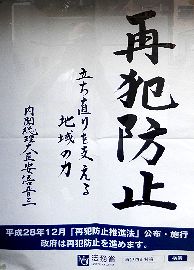 再犯防止
立ち直りを支える
地域の力
内閣総理大臣 安倍晋三
平成28年12月「再犯防止推進法」公布・施行
政府は再犯防止を進めます。
法務省